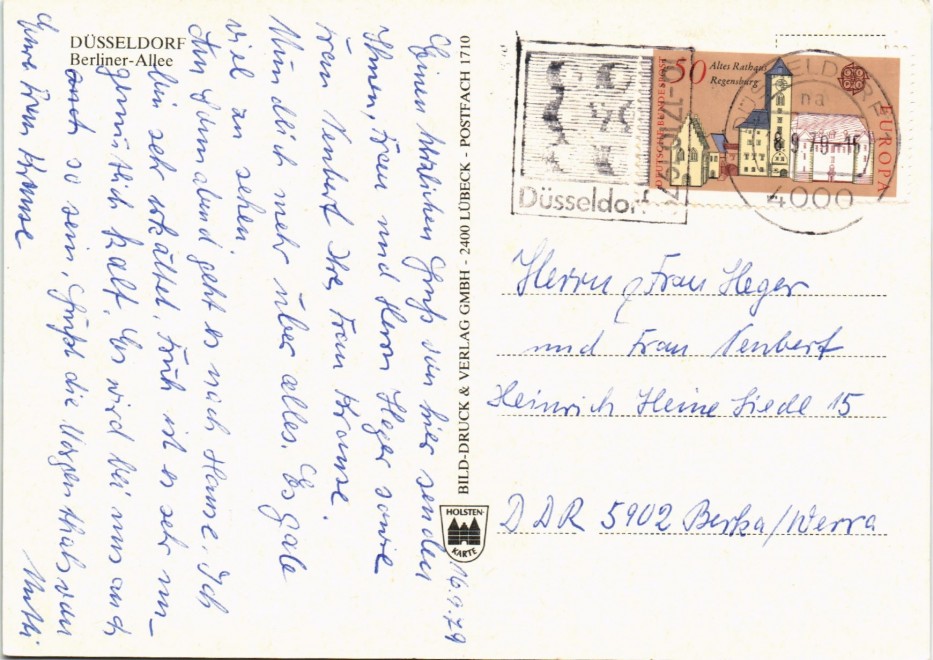 DÜSSELDORF
Berliner-Allee
16.9.79
Einen herzlichen Gruß von hier senden
Ihnen, Frau und Herrn Heger sowie
Frau Venbert Ihre Frau Krause.
Mündlich mehr über alles. Es gäbe
viel zu sehen.
Am Sonnabend geht es nach Hause. Ich
bin sehr erkältet. Früh ist es sehr un-
gemütlich kalt. Es wird bei uns auch
so sein. Grüßt die Morgenthals von
Ihrer Frau Krause
Mutti
BILD-DRUCK & VERLAG GMBH - 2400 LÜBECK - POSTFACH 1710
HOLSTEN-
KARTE
Düsseldorf
DEUTSCHE BUNDESPOST
50
Altes Rathaus
Regensburg
EUROPA
DÜSSELDORF
na
9.79-15
4000
Herrn & Frau Heger
und Frau Venbert
Heinrich Heine Siedl 15
DDR 5902 Berka/Werra